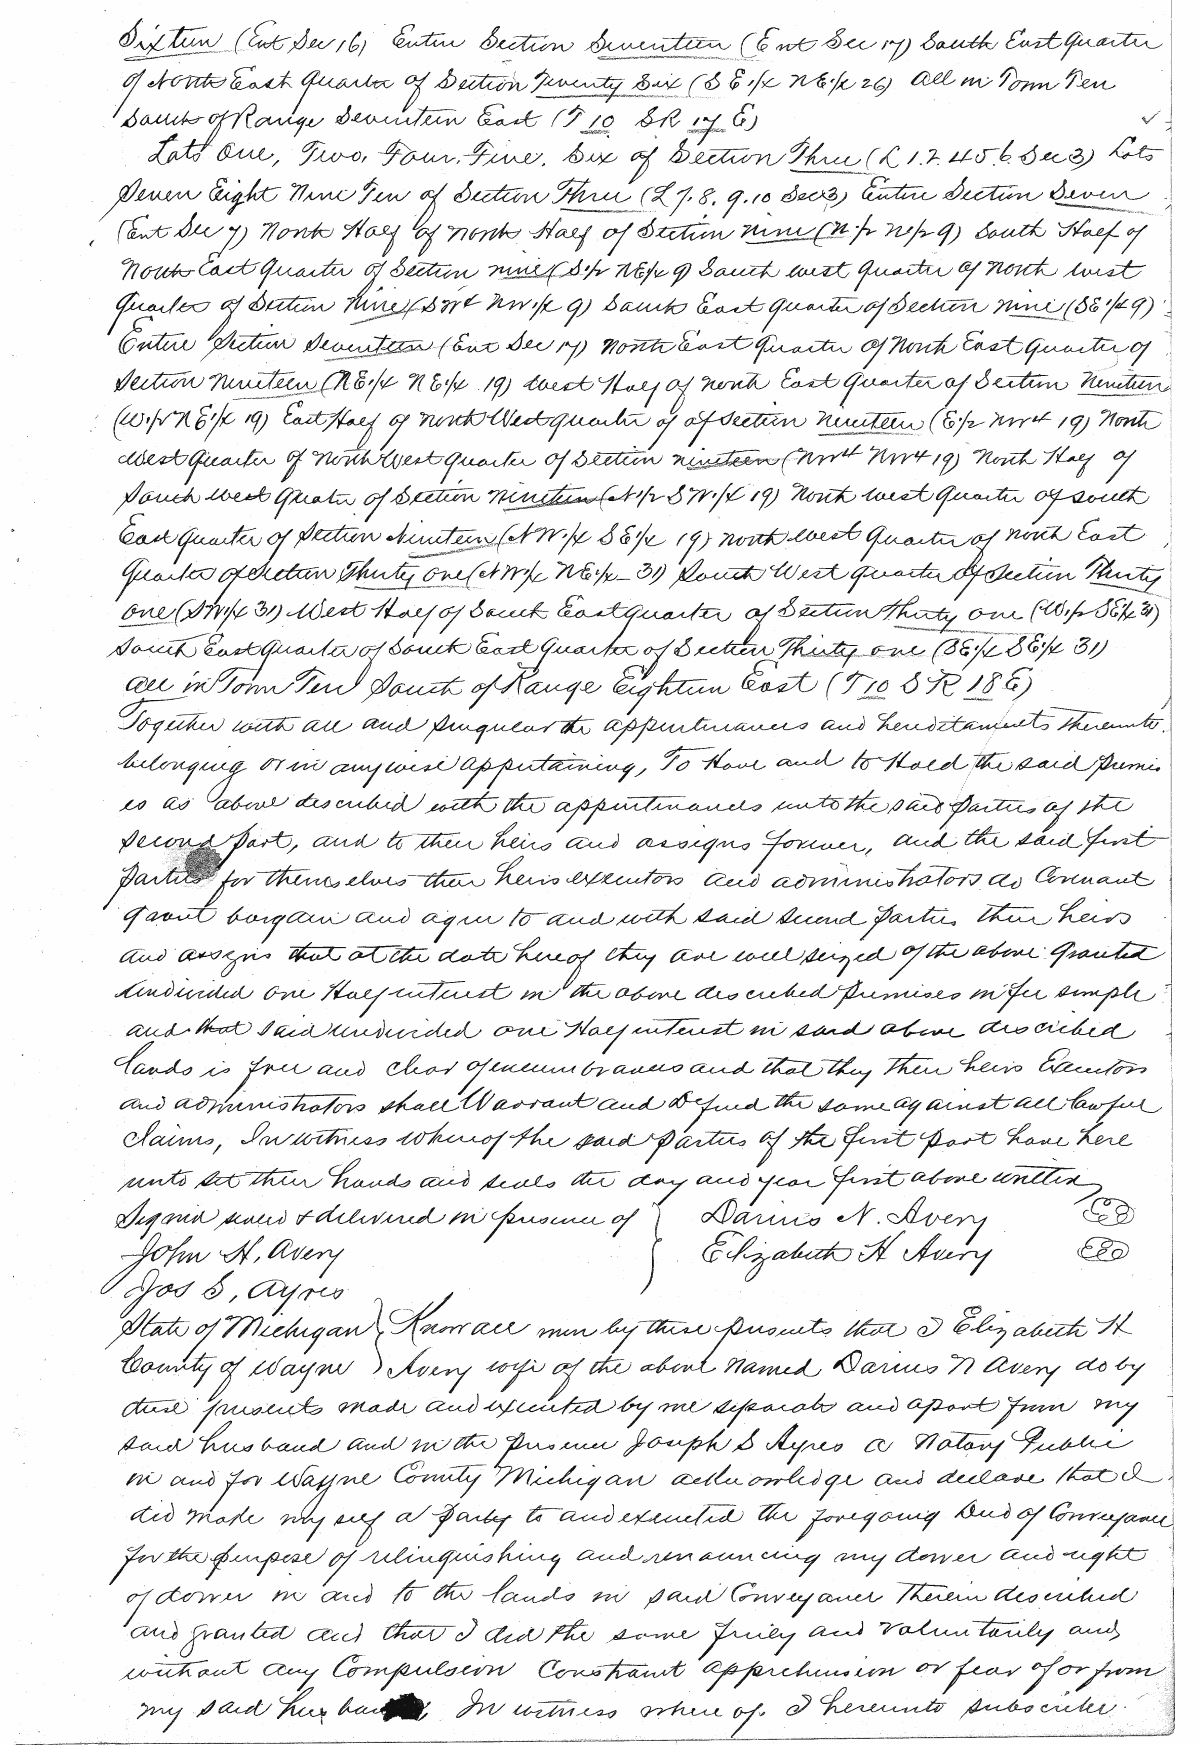 Sixteen (Ent Sec 16) Entire Section Seventeen (Ent Sec 17) South East Quarter
of North East Quarter of Section Twenty Six (S E 1/4 N E 1/4 26) All in Town Ten
South of Range Seventeen East (T 10 S R 17 E)
Lots One, Two, Four, Five, Six of Section Three (L 1.2.4.5.6 Sec 3) Lots
Seven Eight Nine Ten of Section Three (L 7.8.9.10 Sec 3) Entire Section Seven
(Ent Sec 7) North Half of North Half of Section Nine (N 1/2 N 1/2 9) South Half of
North East Quarter of Section Nine (S 1/2 NE 1/4 9) South West Quarter of North West
Quarter of Section Nine (SW 4 NW 1/4 9) South East Quarter of Section Nine (SE 1/4 9)
Entire Section Seventeen (Ent Sec 17) North East Quarter of North East Quarter of
Section Nineteen (N E 1/4 N E 1/4 19) West Half of North East Quarter of Section Nineteen
(W 1/2 N E 1/4 19) East Half of North West quarter of of Section Nineteen (E 1/2 NW 4 19) North
West Quarter of North West Quarter of Section nineteen (NW 4 NW 4 19) North Half of
South West Quater of Section Nineteen (N 1/2 S W 1/4 19) North West Quarter of South
East Quarter of Section Nineteen (N W 1/4 S E 1/4 19) North West Quarter of North East
Quarter of Section Thirty one (N W 1/4 N E 1/4 31) South West quarter of Section Thirty
one (S W 1/4 31) West Half of South East quarter of Section Thirty one (W 1/2 SE 1/4 31)
South East Quarter of South East Quarter of Section Thirty one (SE 1/4 SE 1/4 31)
all in Town Ten South of Range Eighteen East (T 10 S R 18 E)
Together with all and singular the appurtenances and hereditaments thereunto
belonging or in anywise appertaining, To Have and to Hold the said premis
es as above described with the appurtenances unto the said parties of the
second part, and to their heirs and assigns forever, and the said first
parties for themselves their heirs executors and administrators do Covenant
grant bargain and agree to and with said second parties their heirs
and assigns that at the date hereof they are well seized of the above granted
undivided one Half interest in the above described premises in fee simple
and that said undivided one Half interest in said above described
lands is free and clear of encumbrances and that they their heirs Executors
and administrators shall Warrant and Defend the same against all lawful
claims, In witness whereof the said parties of the first part have here
unto set their hands and seals the day and year first above written
Signed sealed & delivered in presence of Darius N. Avery
John H. Avery Elizabeth H Avery
Jos S, Ayres
State of Michigan Know all men by these presents that I Elizabeth H
County of Wayne Avery wife of the above Named Darius N Avery do by
these presents made and executed by me separate and apart from my
said husband and in the presence Joseph S Ayres a Notary Public
in and for Wayne County Michigan acknowledge and declare that I
did made myself a party to and executed the foregoing Deed of Conveyance
for the purpose of relinquishing and renouncing my dower and right
of dower in and to the lands in said Conveyance Therein described
and granted and that I did the same freely and voluntarily and
without any Compulsion Constraint apprehension or fear of or from
my said husband In witness where of I hereunto subscribe